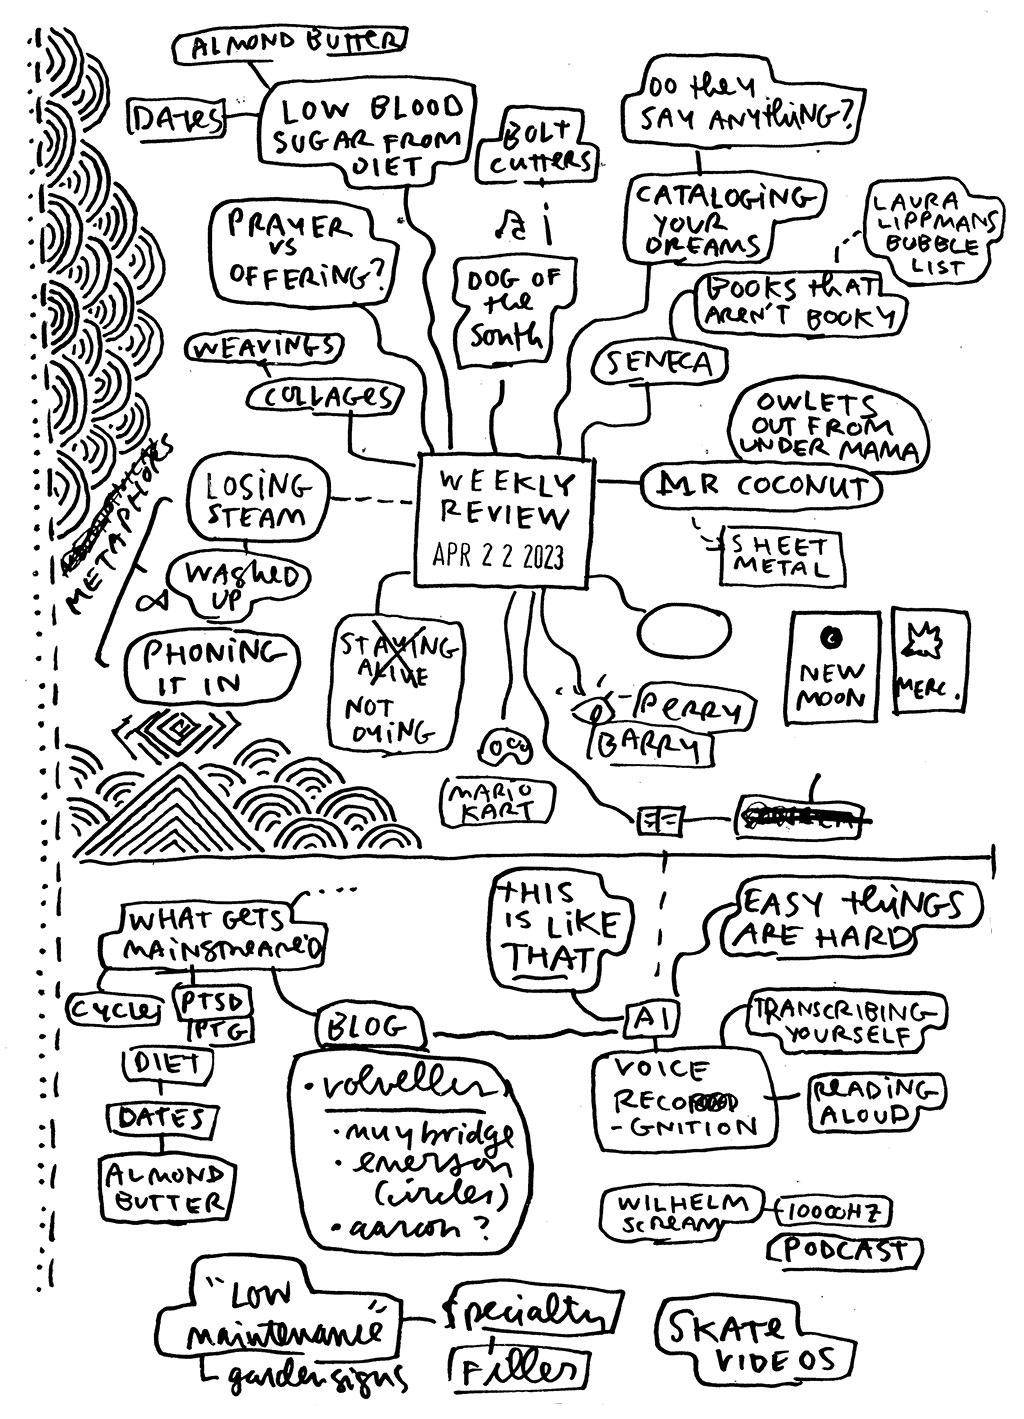 ALMOND BUTTER
DATES
LOW BLOOD
SUGAR FROM
DIET
BOLT
CUTTERS
DO they
SAY ANYthiNG?
PRAYER
VS
OFFERING?
CATALOGING
YOUR
DREAMS
LAURA
LIPPMANS
BUBBLE
LIST
DOG OF
the
South
BOOKS thAt
AREN'T BOOKY
WEAVINGS
COLLAGES
SENECA
OWLETS
OUT FROM
UNDER MAMA
MR COCONUT
SHEET
METAL
WEEKLY
REVIEW
APR 22 2023
METAPHORS
LOSING
STEAM
WASHED
UP
PHONING
IT IN
STAYING
ALIVE
NOT
DYING
NEW
MOON
MERC.
PERRY
BARRY
MARIO
KART
WHAT GETS
MAINSTREAMED
CYCLES
PTSD
PTG
DIET
DATES
ALMOND
BUTTER
BLOG
• volvelles
• muybridge
• emerson
(circles)
• aaron?
THIS
IS LIKE
THAT
EASY thiNGS
ARE HARD
AI
TRANSCRIBING
YOURSELF
VOICE
RECO
-GNITION
READING
ALOUD
WILHELM
SCREAM
10000HZ
PODCAST
"LOW
maintenance"
garden signs
Specialty
Filler
SKATE
VIDEOS